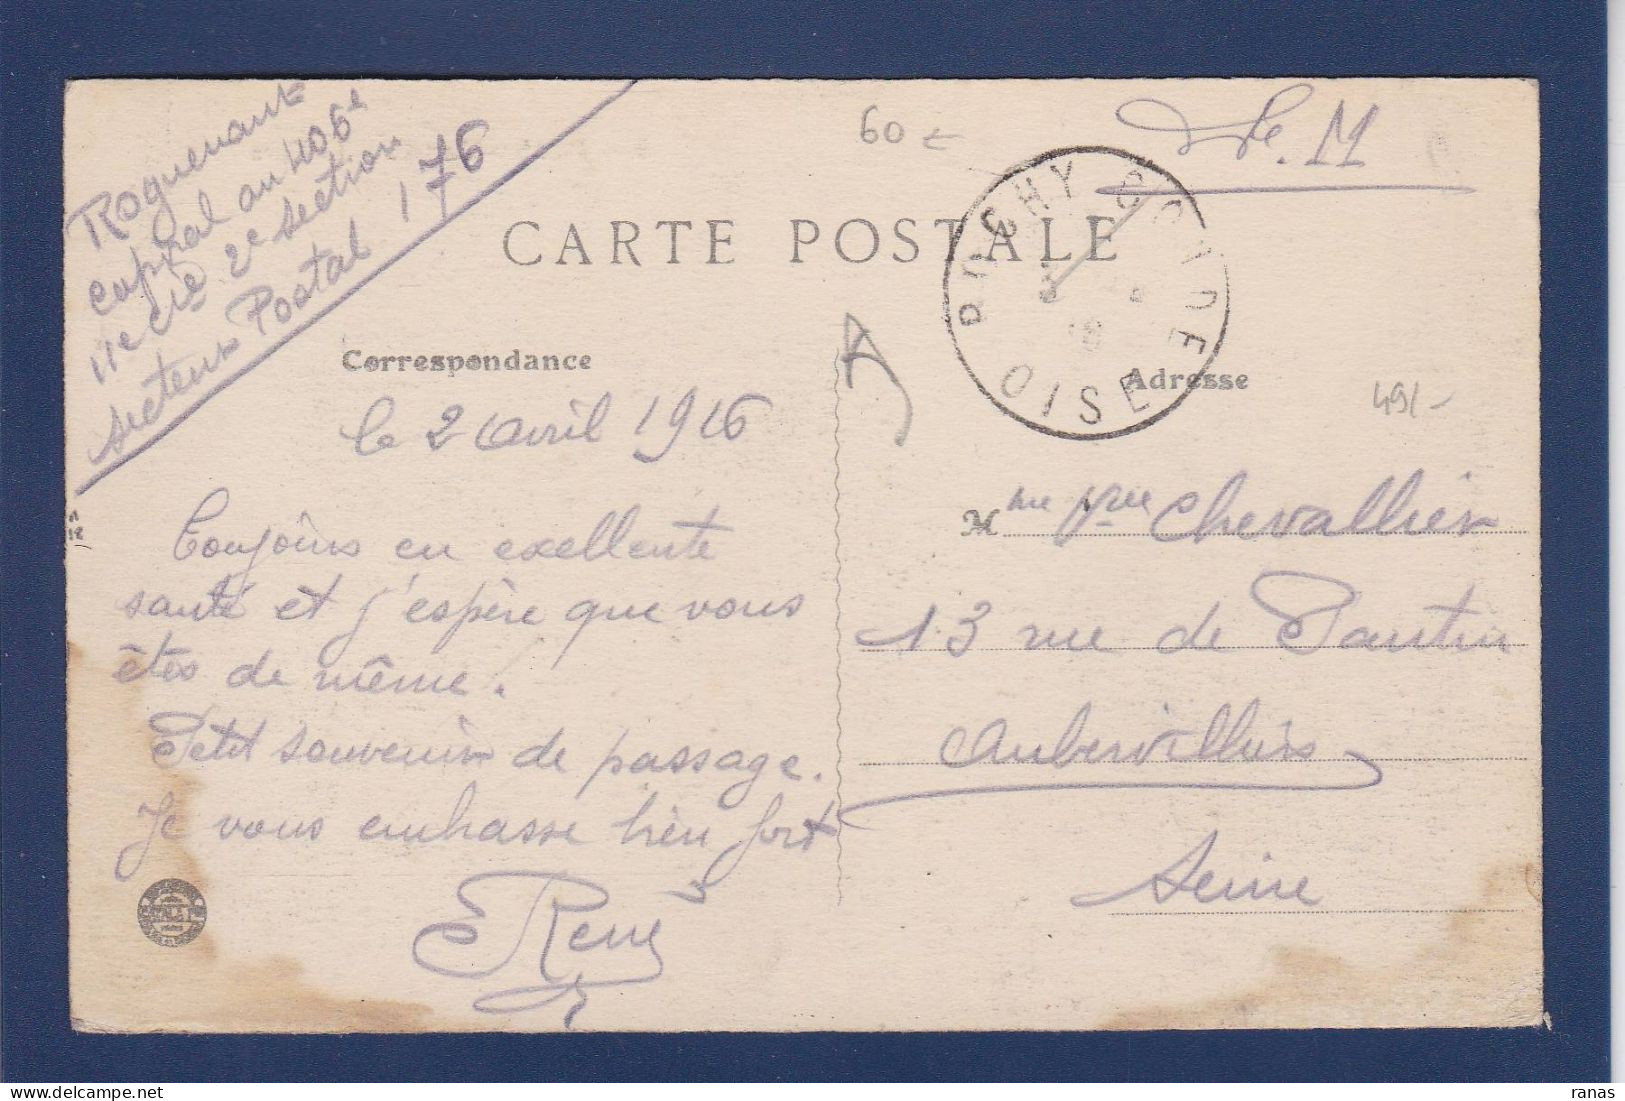 Roquenant
caporal au 406e
11e Cie 2e section
secteur Postal 176
60
F. M.
CARTE POSTALE
OISE
Correspondance
Adresse
49/-
le 2 Avril 1916
Toujours en exellente
santé et j'espère que vous
êtes de même.
Petit souvenir de passage.
Je vous embrasse bien fort
René
Mme Vve Chevallier
13 rue de Pantin
Aubervilliers
Seine
ranas